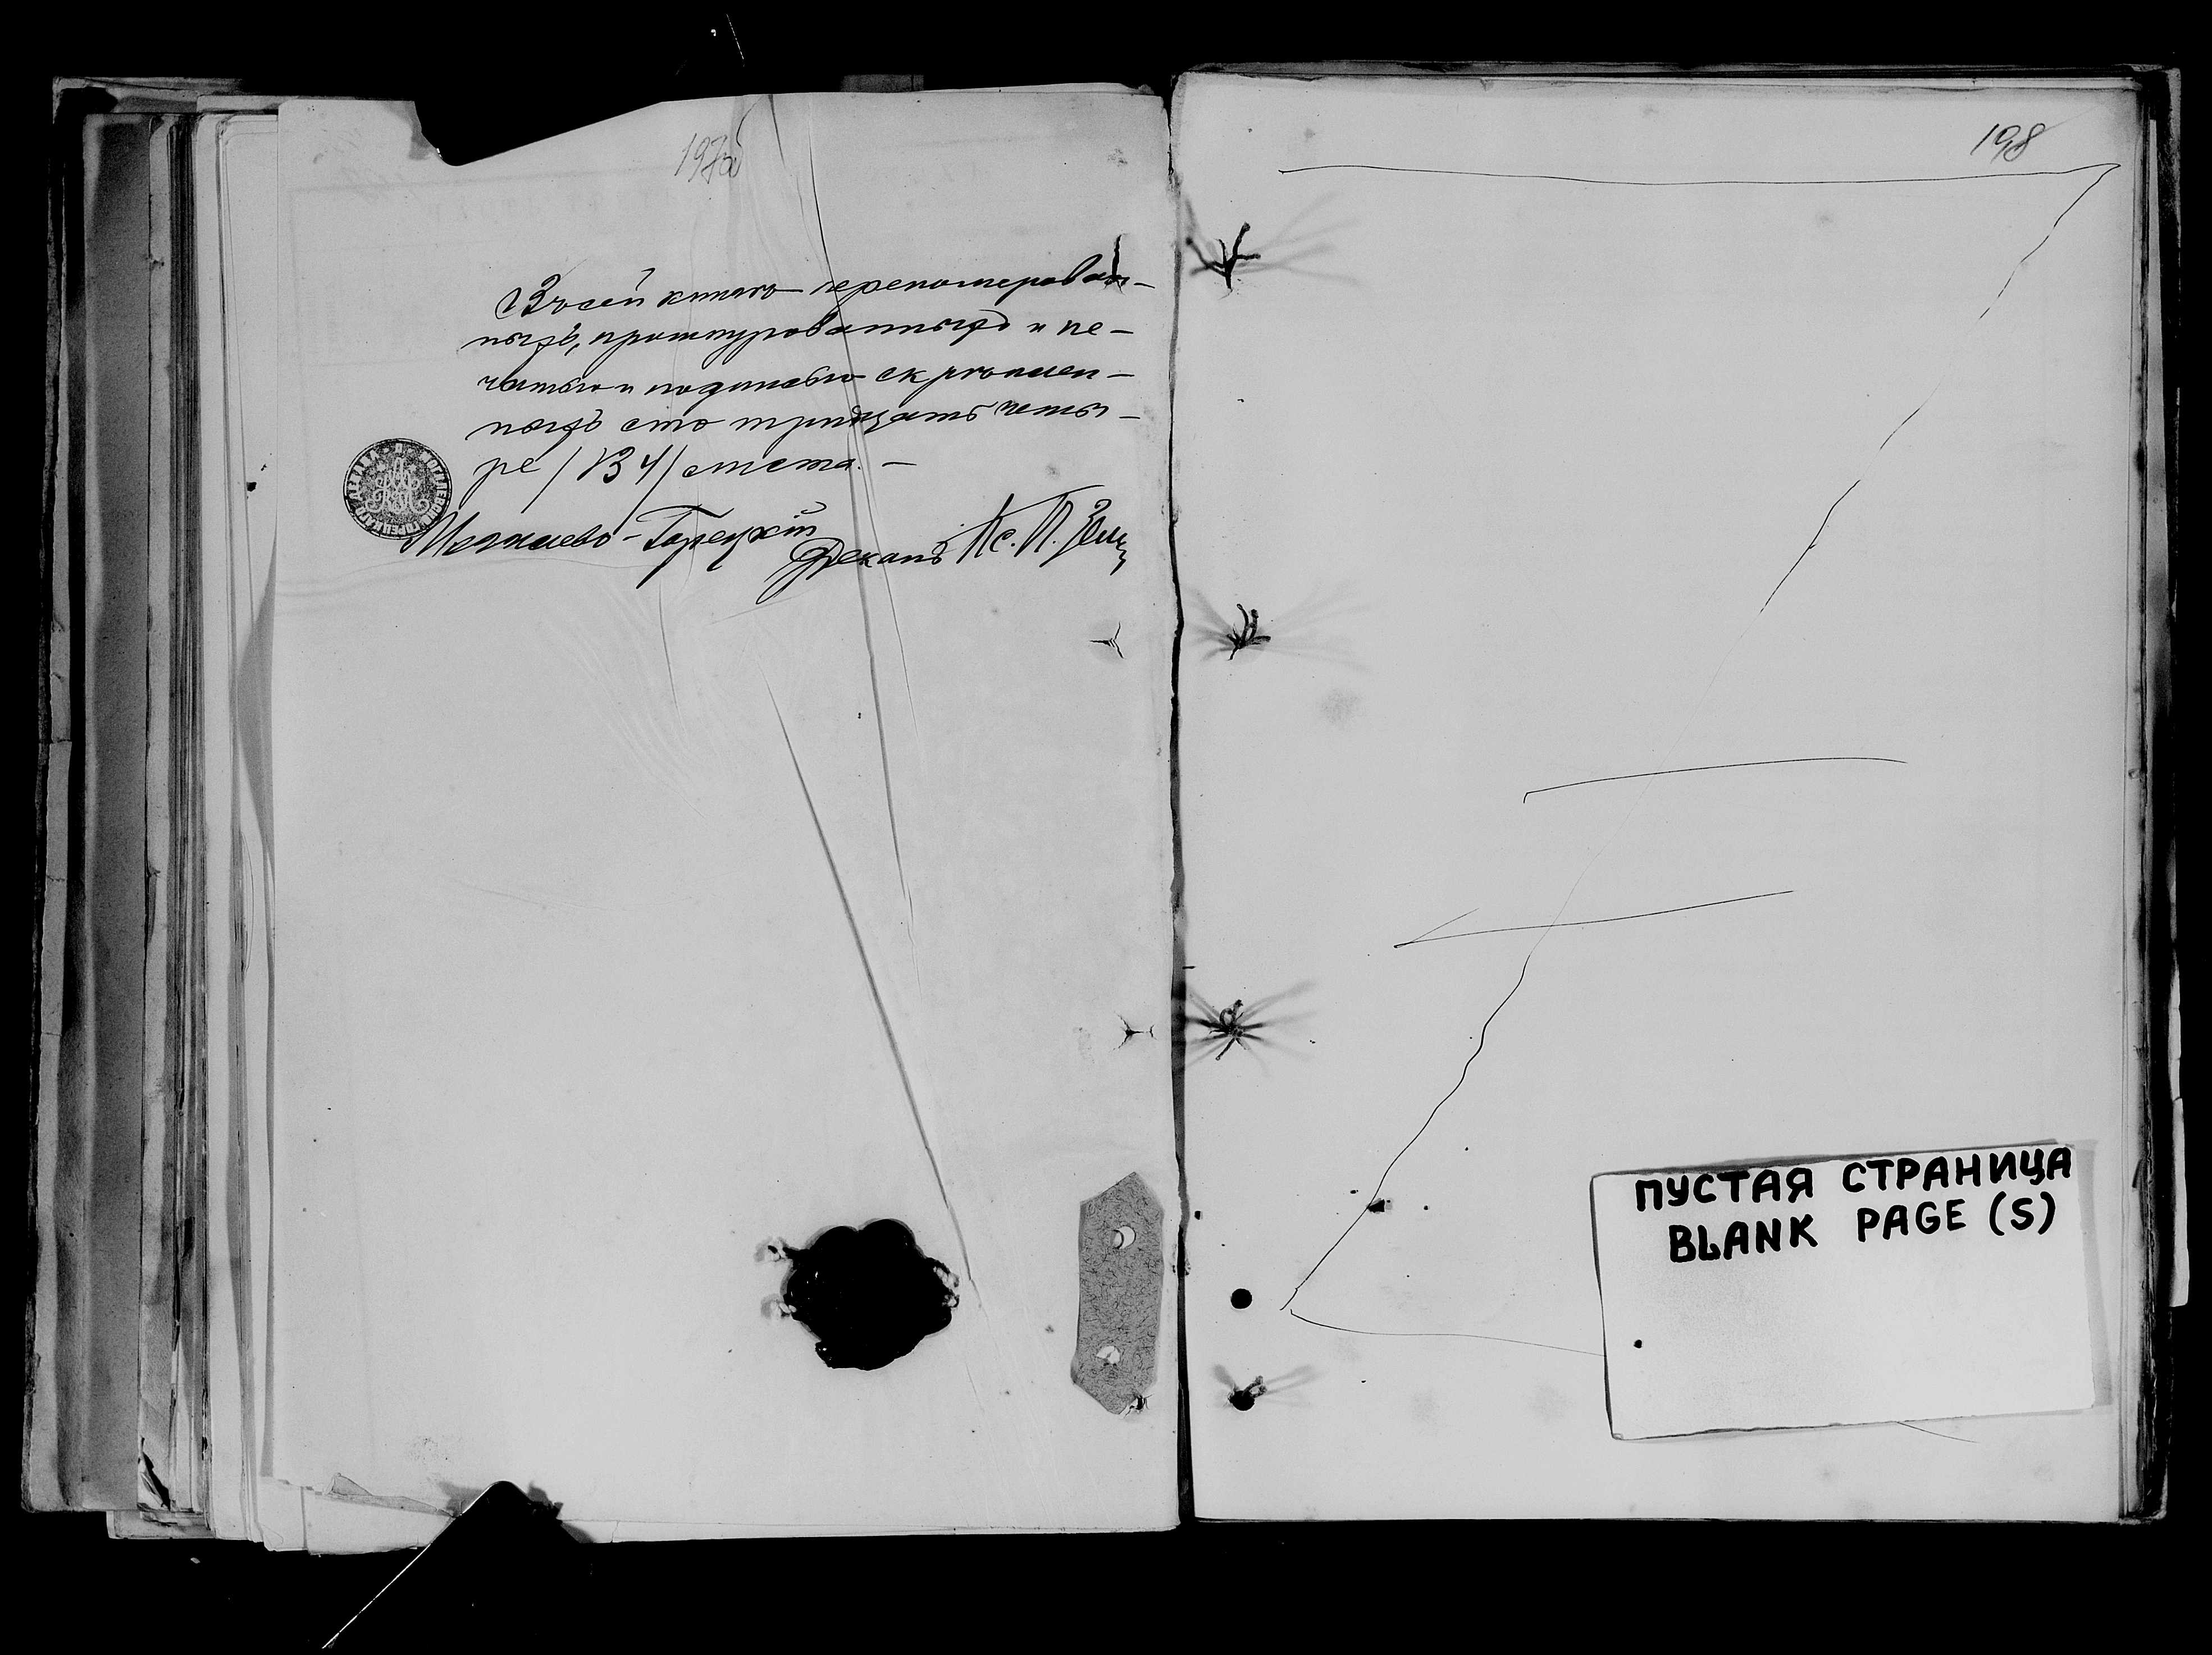 197об
Въ сей книгѣ перенумерован-
ныхъ, прошнурованныхъ и пе-
чатью и подписью скрѣплен-
ныхъ сто тридцать четы-
ре /134/ листа. –
Могилево-Горецкій
Деканъ Кс. П.
198
ПУСТАЯ СТРАНИЦА
BLANK PAGE (S)